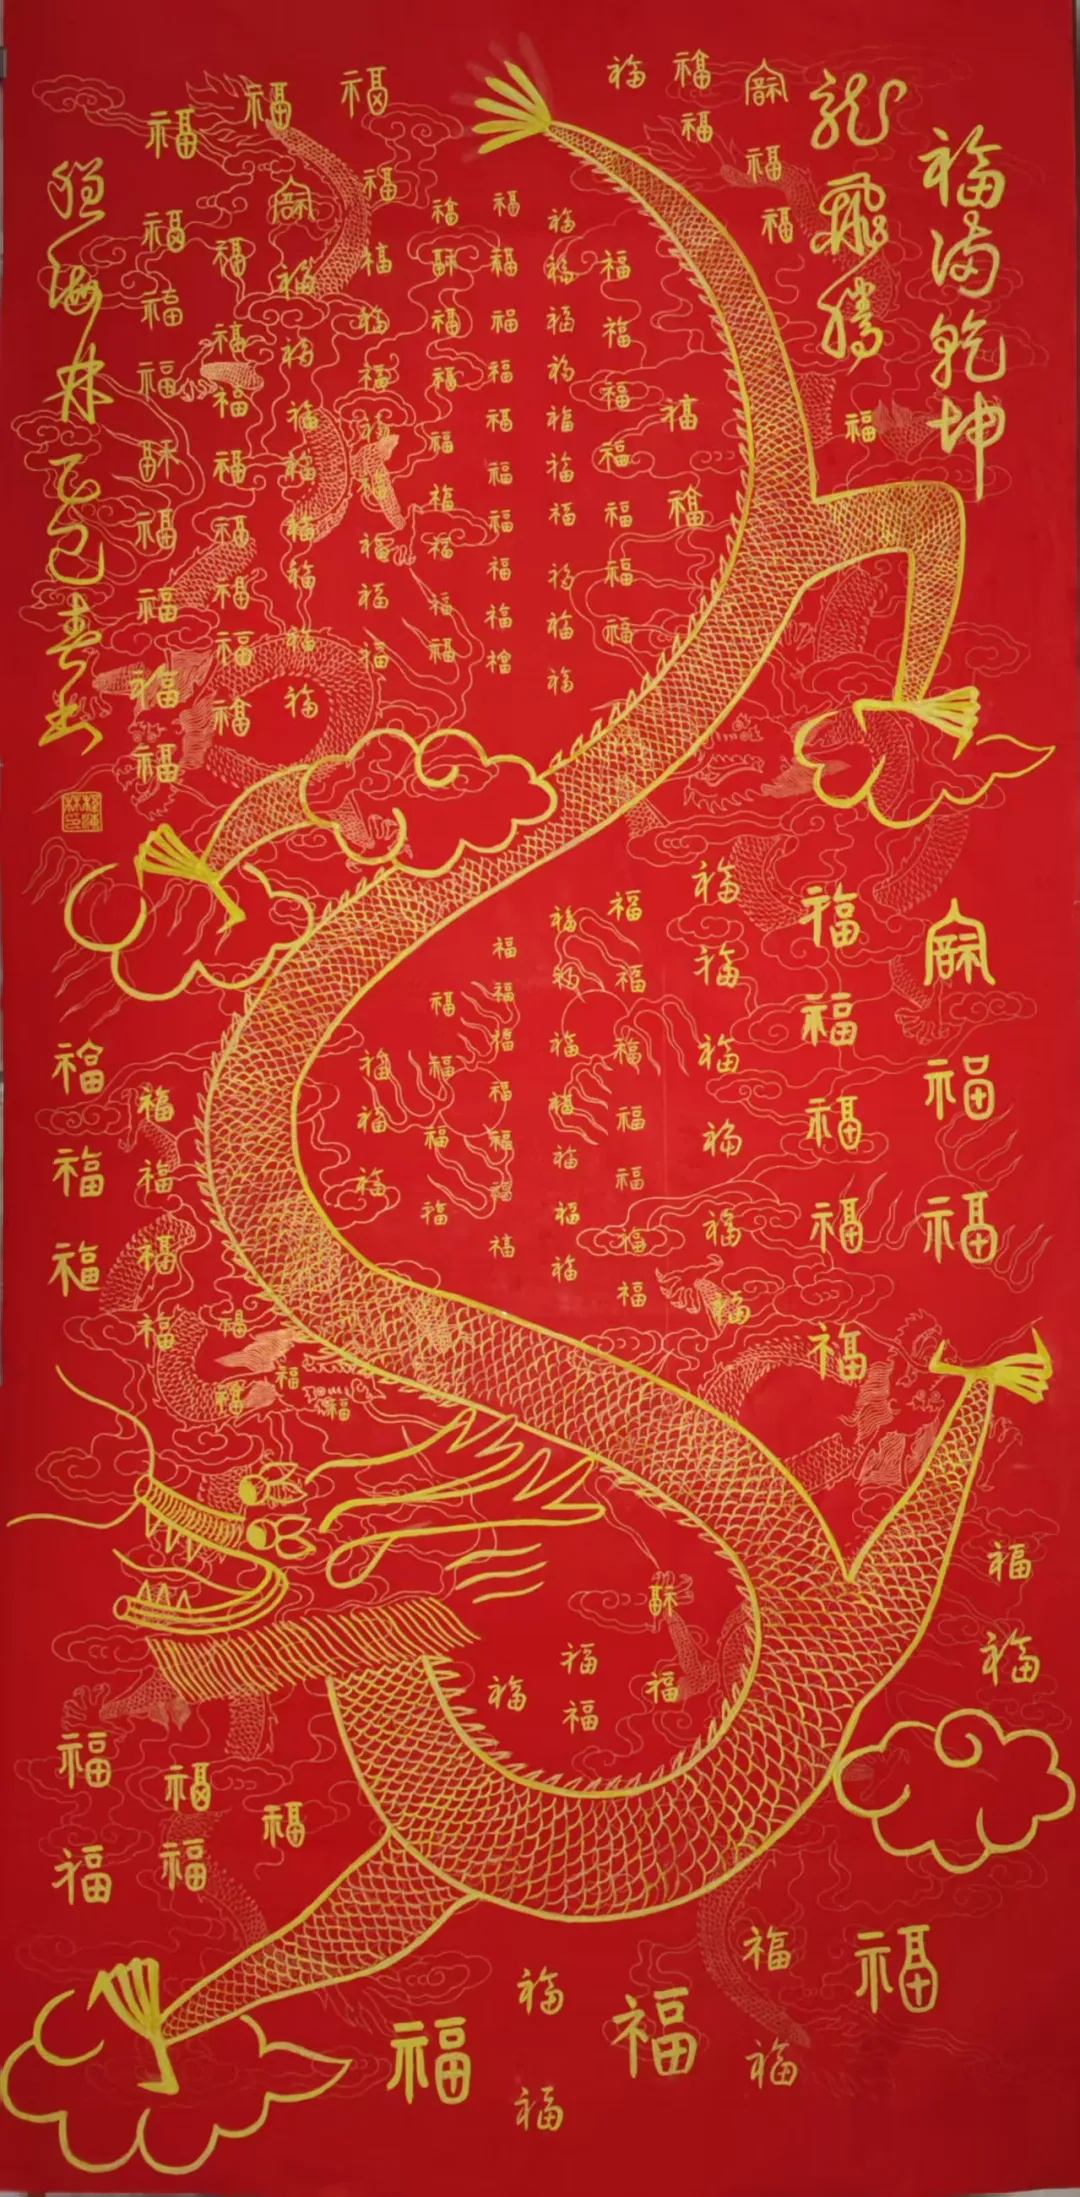 福满乾坤
龍飛騰
福福福
福福
福
福福福福福
福
福福福
福福
福福福福
福福福福福福
福福
福
福
福福福福福福福
福福福福福福福
福福福福福福福福福福
福福福福福福福
福福
福福
福福福福福福福福福福
福福福福福福福
福
福福福福福福福福福
福福福福
福
福福福福福福福福福福
福福福
福福福福福福福福福福
福福
福
福福福福福福福福
福福
福福福福福福福福福
福福福福
福福
程海林乙巳春书
程海林印
福福福
福福